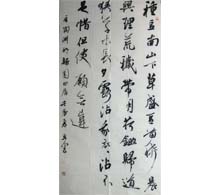 種豆南山下草盛豆苗稀晨
興理荒穢帶月荷鋤歸道
狹草木長夕露沾我衣衣沾不
足惜但使願無違